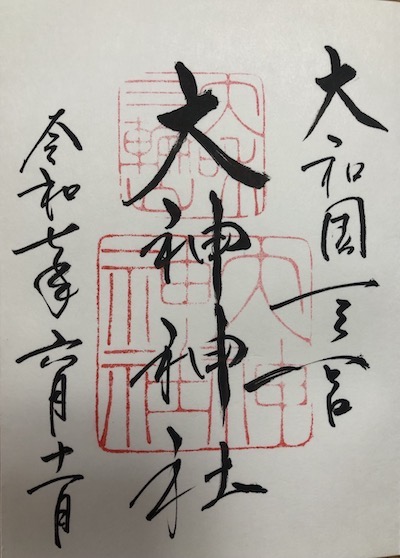 大和国一之宮
大神神社
令和七年六月十一日
大神
神社